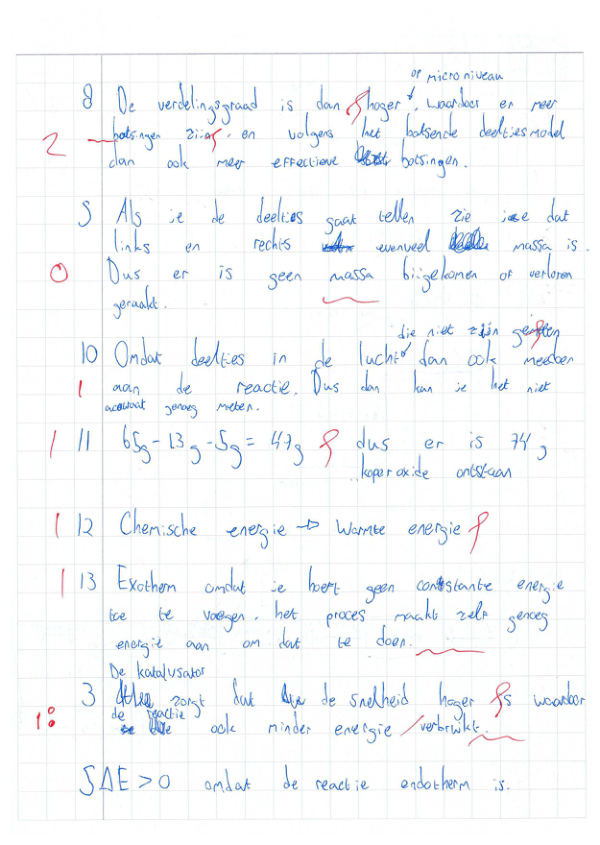 op microniveau
8 De verdelingsgraad is dan hoger, waardoor er meer
2 botsingen zijn. en volgens het botsende deeltjesmodel
dan ook meer effectieve botsingen.
9 Als je de deeltjes gaat tellen zie je dat
links en rechts evenveel massa is.
0 Dus er is geen massa bijgekomen of verloren
geraakt.
die niet zijn gemeten
10 Omdat deeltjes in de lucht dan ook meedoen
1 aan de reactie. Dus dan kan je het niet
accuraat genoeg meten.
1 11 65g - 13g - 5g = 47g dus er is 74g
koperoxide ontstaan
1 12 Chemische energie → Warmte energie
1 13 Exotherm omdat je hoeft geen constante energie
toe te voegen. het proces maakt zelf genoeg
energie aan om dat te doen.
De katalysator
3 zorgt dat de snelheid hoger is waardoor
1 de reactie ook minder energie verbruikt.
5 ΔE > 0 omdat de reactie endotherm is.